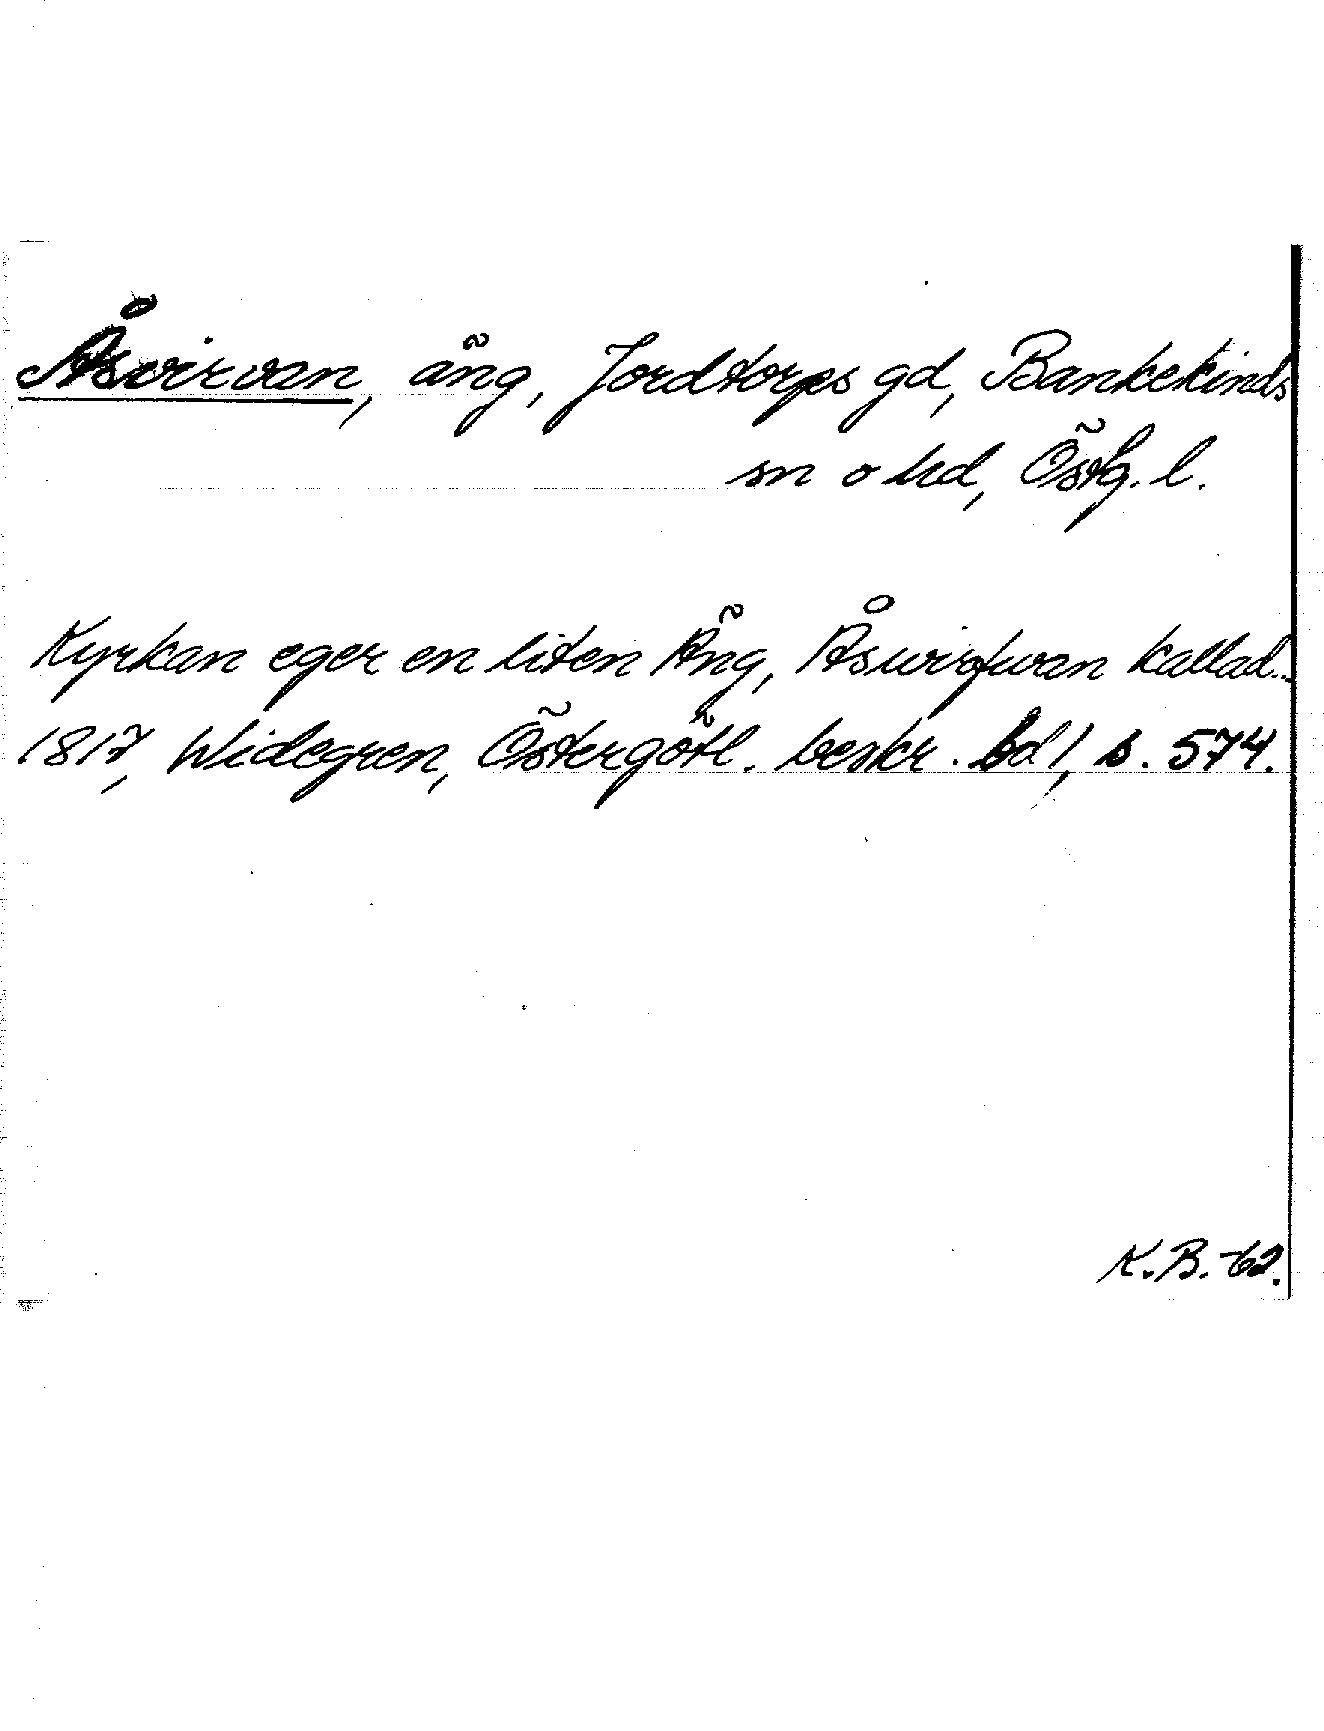 Åsvirvan, äng, Jordtorps gd, Bankekinds
sn o hd, Östg. l.
Kyrkan eger en liten Äng, Åswirfwan kallad..
1817, Widegren, Östergötl. beskr. bd 1, s. 574.
K.B. -62.